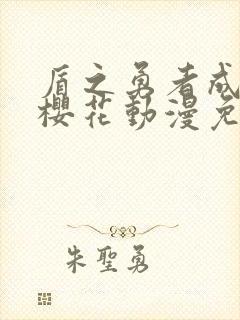 盾之勇者成
櫻花動漫免
朱聖勇